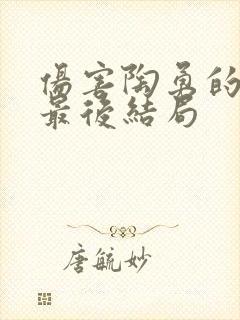 傷害陶勇的
最後結局
唐毓妙